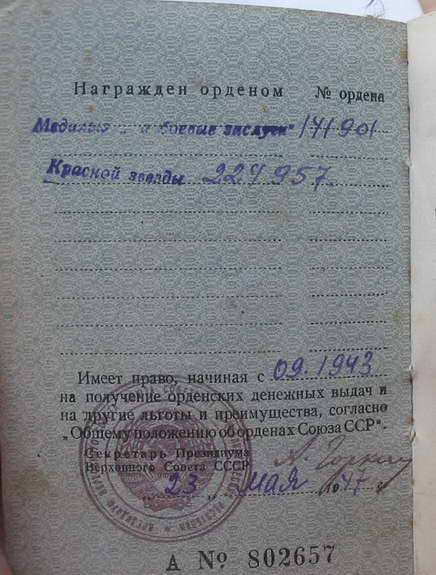 Награжден орденом № ордена
Медалью "за боевые заслуги" 141901
Красной звезды 227957
Имеет право, начиная с 09.1943
на получение орденских денежных выдач и
на другие льготы и преимущества, согласно
„Общему положению об орденах Союза ССР".
Секретарь Президиума
Верховного Совета СССР А. Горкин
„ 23 „ мая 1947 г.
А № 802657